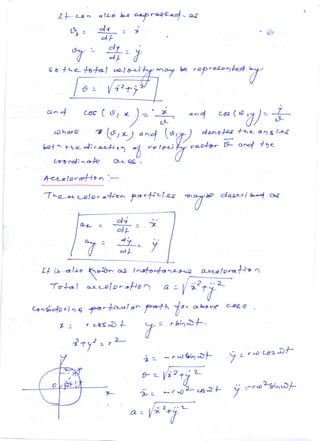 It can also be expressed as
υx = dx/dt = ẋ
υy = dy/dt = ẏ
So the total velocity may be represented by
υ = √ẋ²+ẏ²
and cos (υ, x) = ẋ/υ and cos (υ, y) = ẏ/υ
where (υ, x) and (υ, y) denotes the angles
betn the direction of velocity vector υ and the
coordinate axes.
Acceleration :-
The acceleration particles may be described as
ax = dẋ/dt = ẍ
ay = dẏ/dt = ÿ
It is also known as Instantaneous acceleration
Total acceleration a = √ẍ²+ÿ²
Considering particular path for above case
x = r cos ωt y = r sin ωt.
x²+y² = r²
ẋ = -rω sin ωt ẏ = rω cos ωt
υ = √ẋ²+ẏ²
ẍ = -rω² cos ωt ÿ = -rω² sin ωt
a = √ẍ²+ÿ²
y
O
x